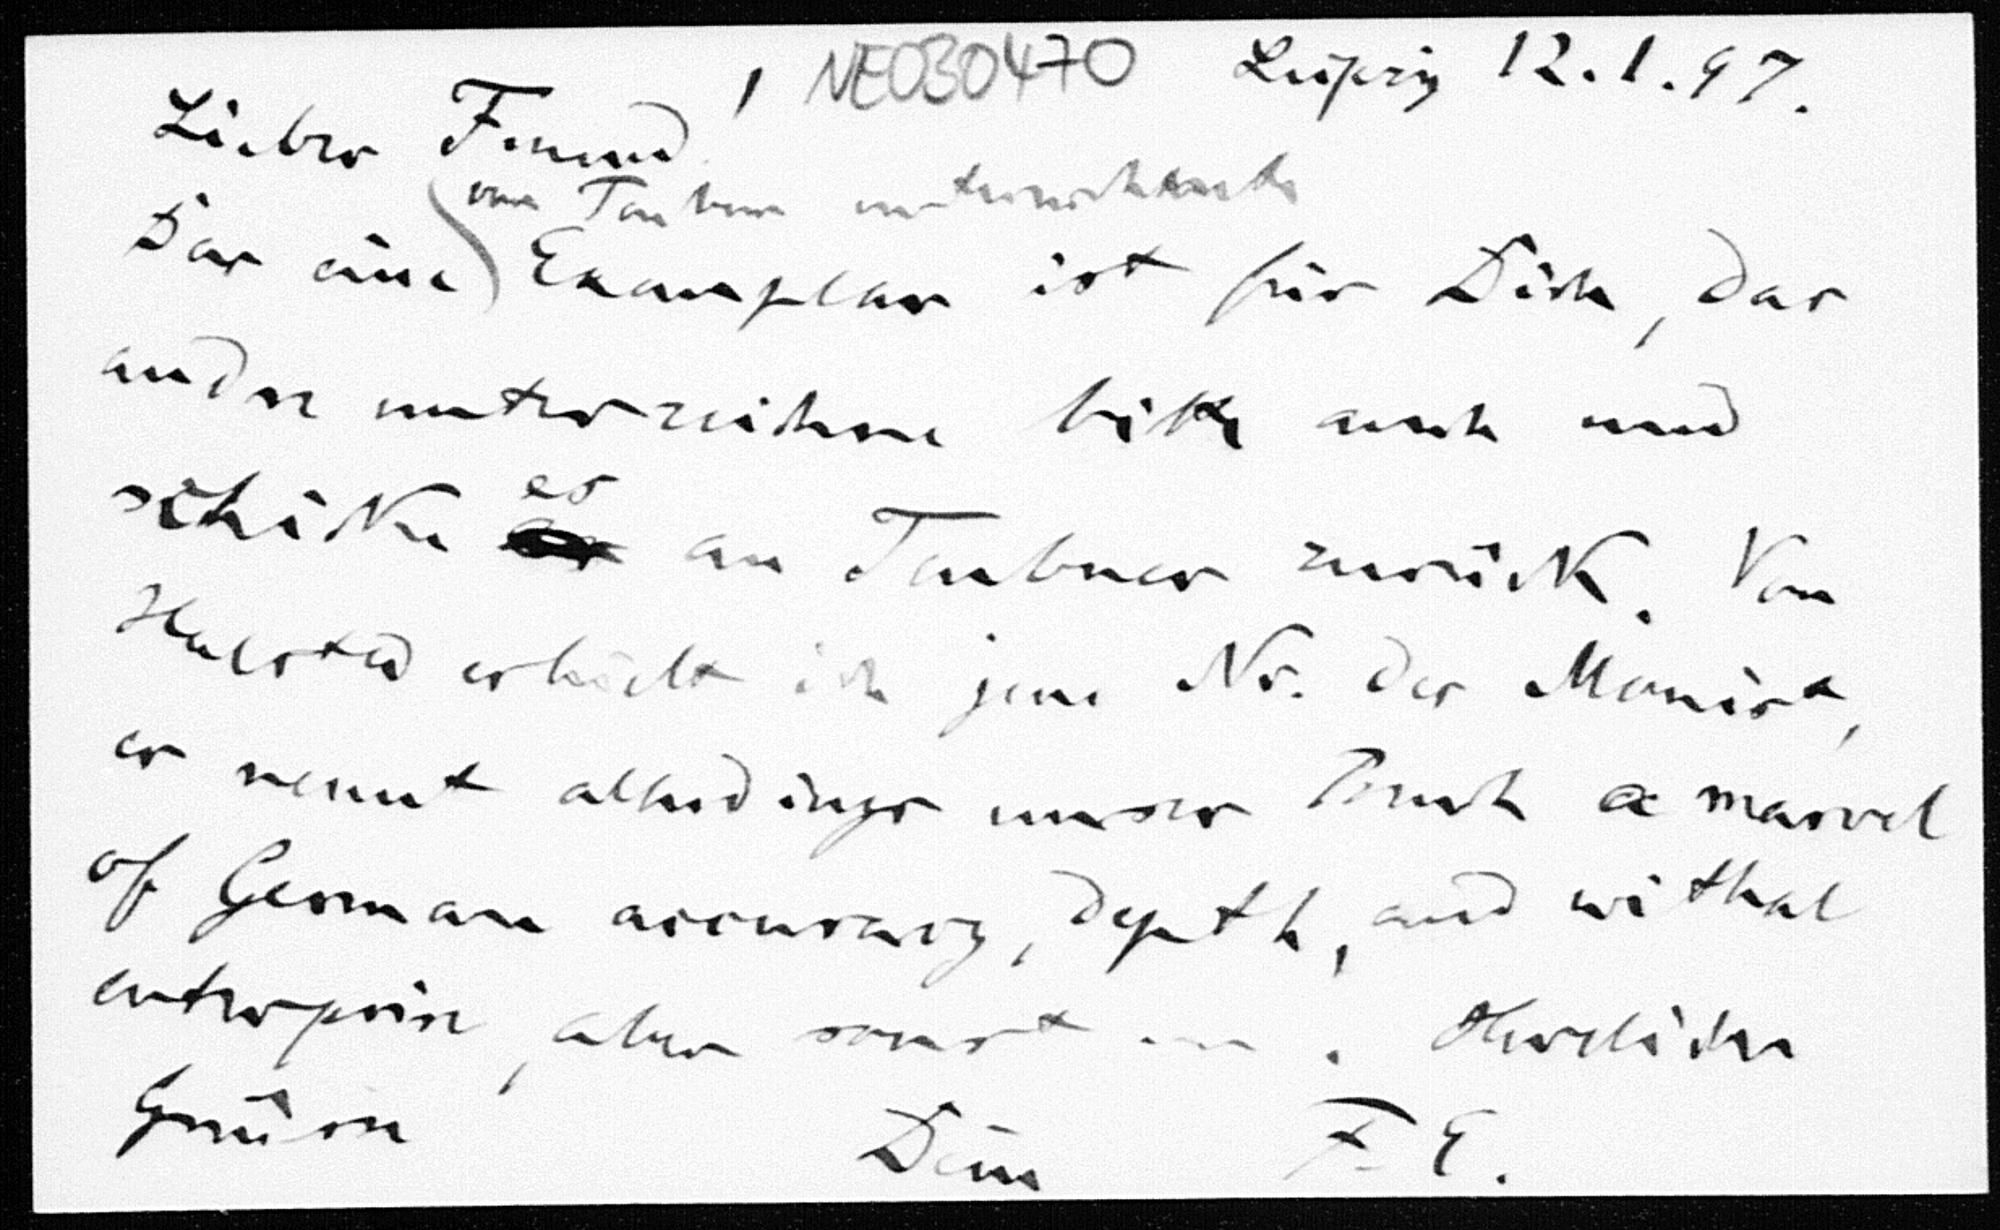 NE030470 Leipzig 12.1.97.
Lieber Freund!
von Teubner unterzeichnete
Das eine Exemplar ist für Dich, das
andre unterzeichne bitte auch und
schicke es an Teubner zurück. Von
Halsted erhielt ich jene Nr. des Monist,
er nennt allerdings unser Buch a marvel
of German accuracy, depth, and withal
enterprise, aber sonst . Herzlichen
Grüssen
Dein F. E.